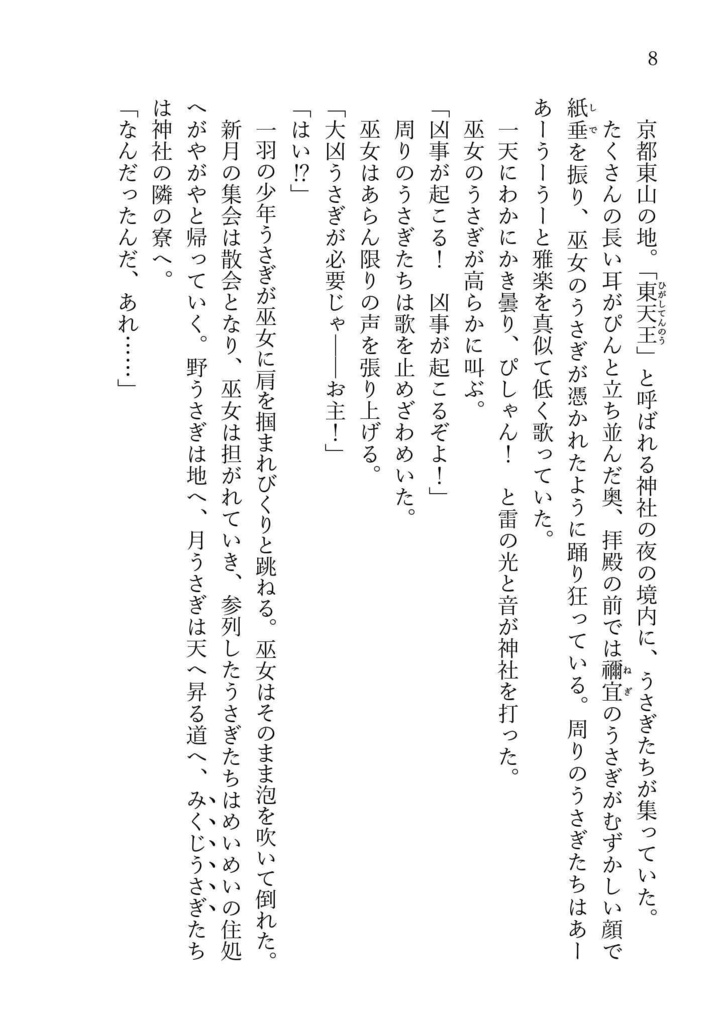 8
京都東山の地。「東天王」と呼ばれる神社の夜の境内に、うさぎたちが集っていた。
たくさんの長い耳がぴんと立ち並んだ奥、拝殿の前では禰宜のうさぎがむずかしい顔で
紙垂を振り、巫女のうさぎが憑かれたように踊り狂っている。周りのうさぎたちはあー
あーうーうーと雅楽を真似て低く歌っていた。
一天にわかにかき曇り、ぴしゃん！　と雷の光と音が神社を打った。
巫女のうさぎが高らかに叫ぶ。
「凶事が起こる！　凶事が起こるぞよ！」
周りのうさぎたちは歌を止めざわめいた。
巫女はあらん限りの声を張り上げる。
「大凶うさぎが必要じゃ――お主！」
「はい⁉」
一羽の少年うさぎが巫女に肩を掴まれびくりと跳ねる。巫女はそのまま泡を吹いて倒れた。
新月の集会は散会となり、巫女は担がれていき、参列したうさぎたちはめいめいの住処
へがやがやと帰っていく。野うさぎは地へ、月うさぎは天へ昇る道へ、みくじうさぎたち
は神社の隣の寮へ。
「なんだったんだ、あれ……」